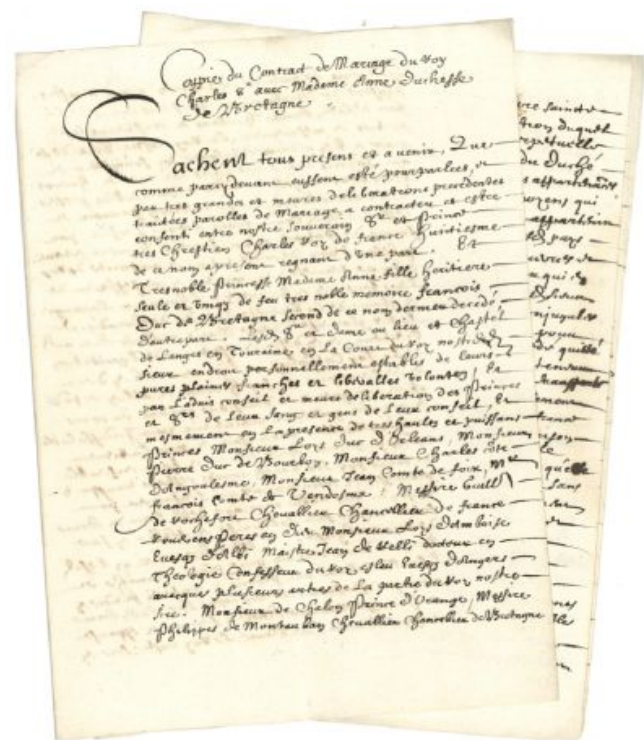 Coppie du Contract de Mariage du Roy
Charles 8e avec Madame Anne Duchesse
de Bretagne
Sachent tous presens et a venir, Que
comme parcydevant eussent esté pourparlees, et
par tres grandes et meures deliberations precedentes
traictées parolles de Mariage a contracter et estre
consenti entre nostre souverain Sr et Prince
tres Chrestien Charles Roy de france huitiesme
de ce nom a present regnant d'une part. Et
Tresnoble Princesse Madame Anne fille heritiere
seule et unique de feu tres noble memoire françois
Duc de Bretagne second de ce nom dernier decedé
d'autre part. Lesdt Sr et Dame au lieu et Chastel
de Langes en Touraine en La Cour du roy nostred
sieur endroit personnellement establis de leurs
pures plaines franches et liberalles volontez, Et
par L'advis conseil et meure deliberation des Princes
et Srs de Leur sang et gens de Leur conseil, Et
mesmement en La presence de tres haults et puissans
Princes Monsieur Loys Duc d'Orleans, Monsieur
Pierre Duc de Bourbon, Monsieur Charles Côte
Dangoulesme, Monsieur Jean Comte de foix, Mr
françois Comte de Vendosme, Messire Guill
de Rochefort Chevallier Chancellier de france
Reverens Peres en Dieu Monsieur Loys Damboise
Evesque d'Albi Maistre Jean de Relli docteur en
Theologie Confesseur du roy esleu Evesq d'Angers
avecques plusieurs autres de La partie du roy nostre
sire. Monsieur de Chalon Prince d'Orange, Messire
Philippes de Montauban Chevallier Chancellier de Bretagne
sainte
duquel
perpetuelle
du Duché
qui
pays
tensuu
sans